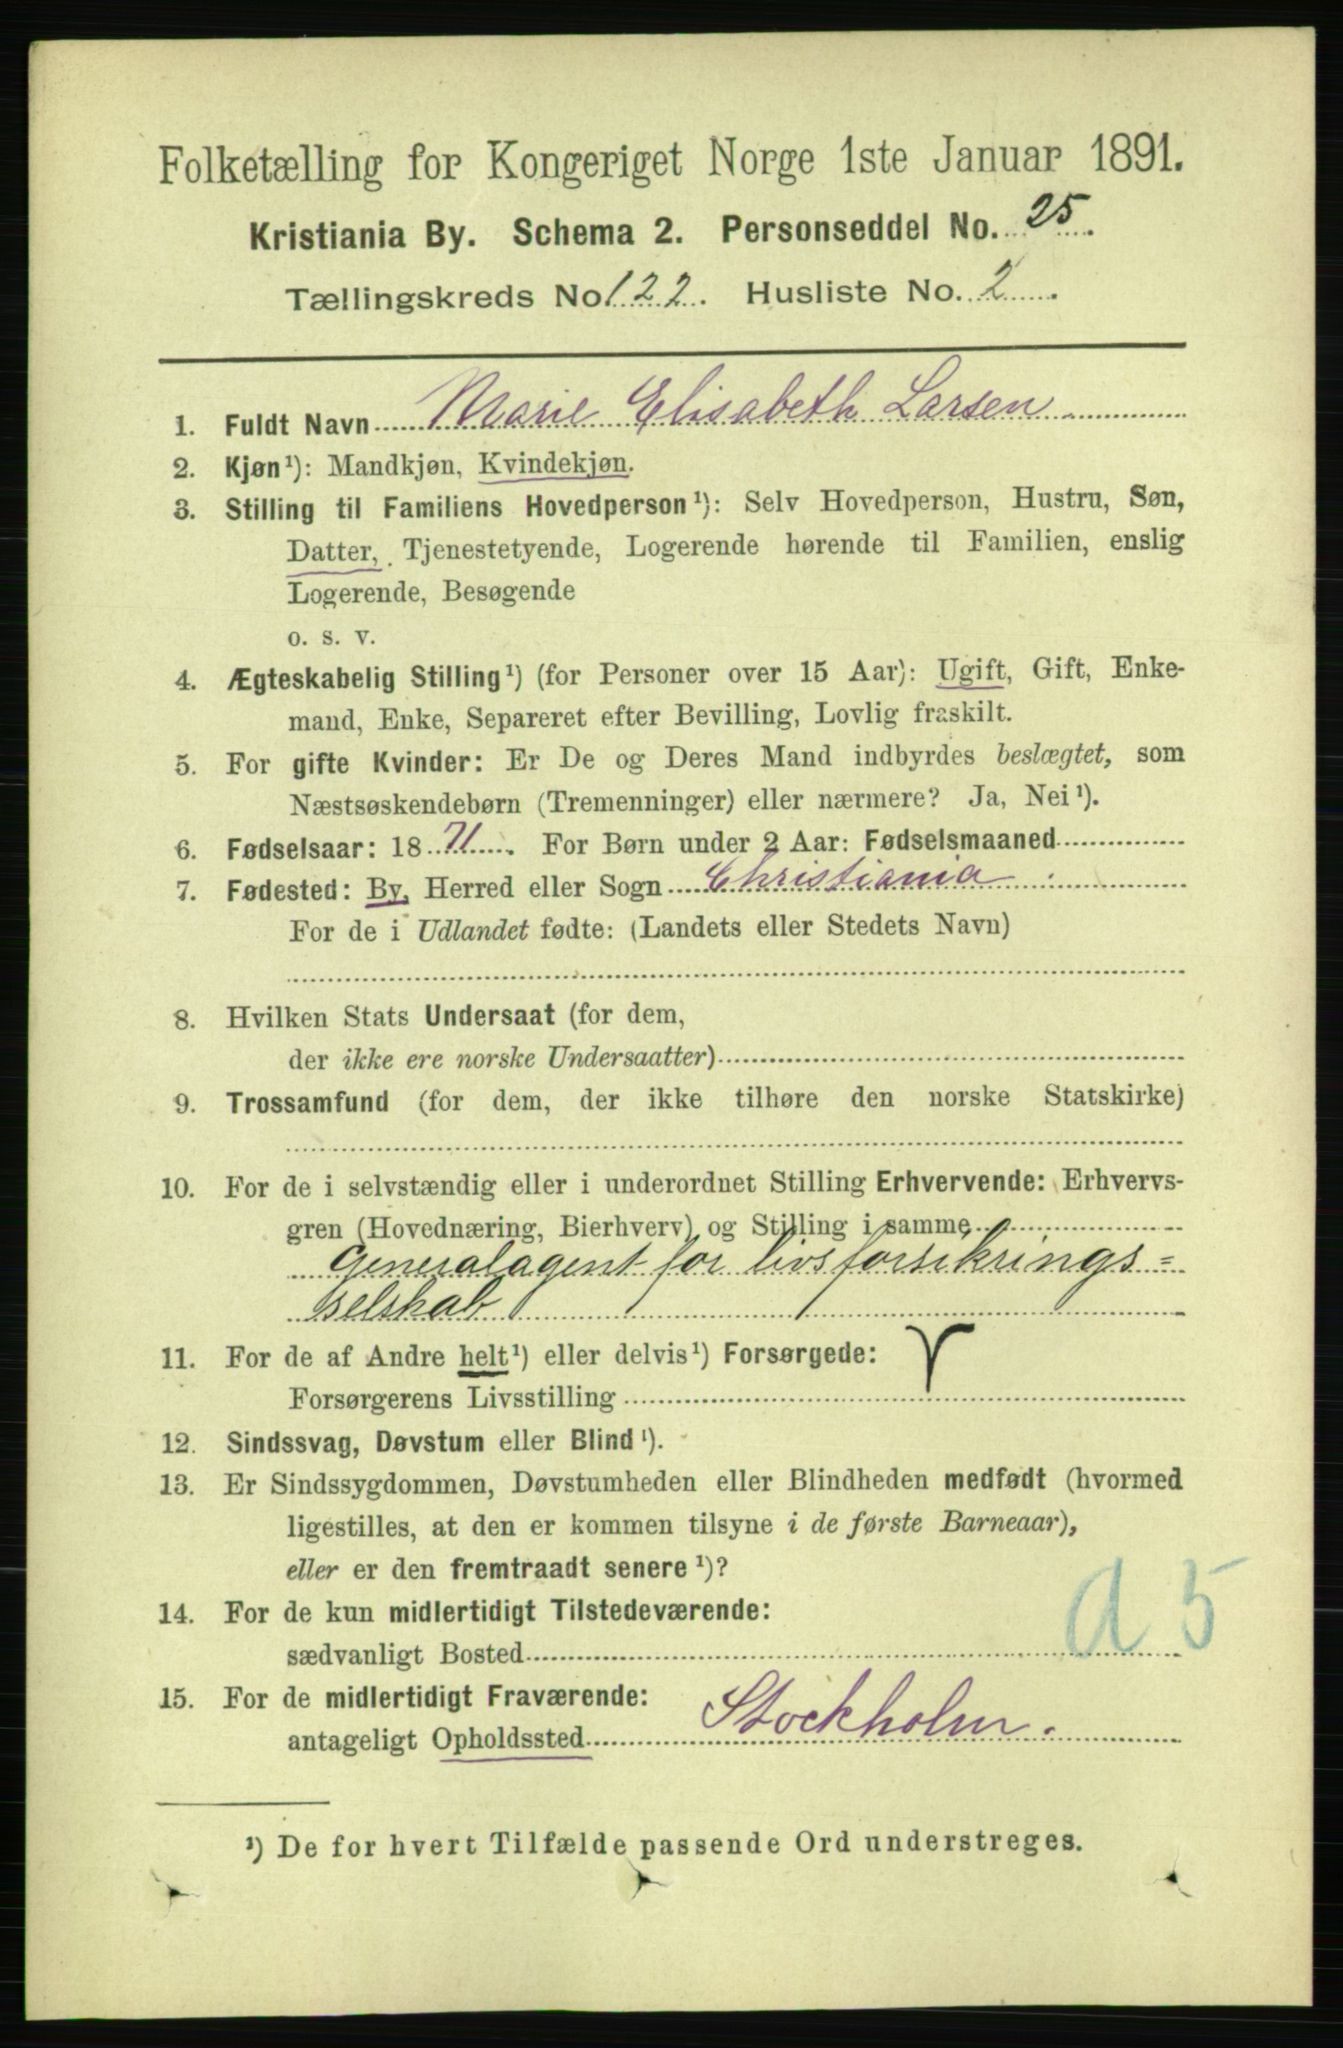 Folketælling for Kongeriget Norge 1ste Januar 1891.
Kristiania By. Schema 2. Personseddel No. 25.
Tællingskreds No. 122. Husliste No. 2.
1. Fuldt Navn Marie Elisabeth Larsen
2. Kjøn¹): Mandkjøn, Kvindekjøn.
3. Stilling til Familiens Hovedperson¹): Selv Hovedperson, Hustru, Søn,
Datter, Tjenestetyende, Logerende hørende til Familien, enslig
Logerende, Besøgende
o. s. v.
4. Ægteskabelig Stilling¹) (for Personer over 15 Aar): Ugift, Gift, Enke-
mand, Enke, Separeret efter Bevilling, Lovlig fraskilt.
5. For gifte Kvinder: Er De og Deres Mand indbyrdes beslægtet, som
Næstsøskendebørn (Tremenninger) eller nærmere? Ja, Nei¹).
6. Fødselsaar: 1871. For Børn under 2 Aar: Fødselsmaaned
7. Fødested: By, Herred eller Sogn Christiania
For de i Udlandet fødte: (Landets eller Stedets Navn)
8. Hvilken Stats Undersaat (for dem,
der ikke ere norske Undersaatter)
9. Trossamfund (for dem, der ikke tilhøre den norske Statskirke)
10. For de i selvstændig eller i underordnet Stilling Erhvervende: Erhvervs-
gren (Hovednæring, Bierhverv) og Stilling i samme
Generalagent for livsforsikrings=
selskab
11. For de af Andre helt¹) eller delvis¹) Forsørgede:
Forsørgerens Livsstilling
12. Sindssvag, Døvstum eller Blind¹).
13. Er Sindssygdommen, Døvstumheden eller Blindheden medfødt (hvormed
ligestilles, at den er kommen tilsyne i de første Barneaar),
eller er den fremtraadt senere¹)?
14. For de kun midlertidigt Tilstedeværende:
sædvanligt Bosted
a 5
15. For de midlertidigt Fraværende:
antageligt Opholdssted Stockholm.
¹) De for hvert Tilfælde passende Ord understreges.